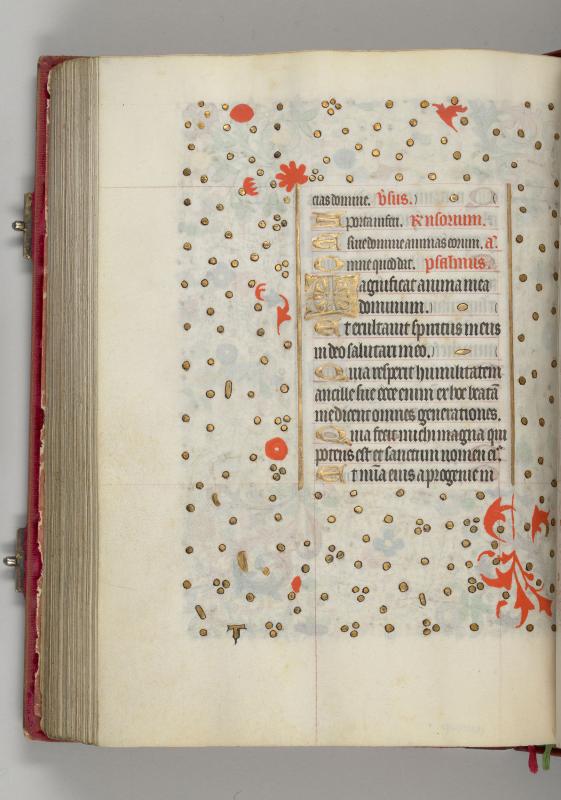 cias domine. v̄sus.
A porta inferi. Rn̄sorium.
E rue domine animas eorum. an̄.
O mne quod dat. psalmus.
M agnificat anima mea
dominum.
E t exultauit spiritus meus
in deo salutari meo.
Q uia respexit humilitatem
ancille sue ecce enim ex hoc beatā
me dicent omnes generationes.
Q uia fecit michi magna qui
potens est et sanctum nomen eiꝰ.
E t mīa eius a progenie in